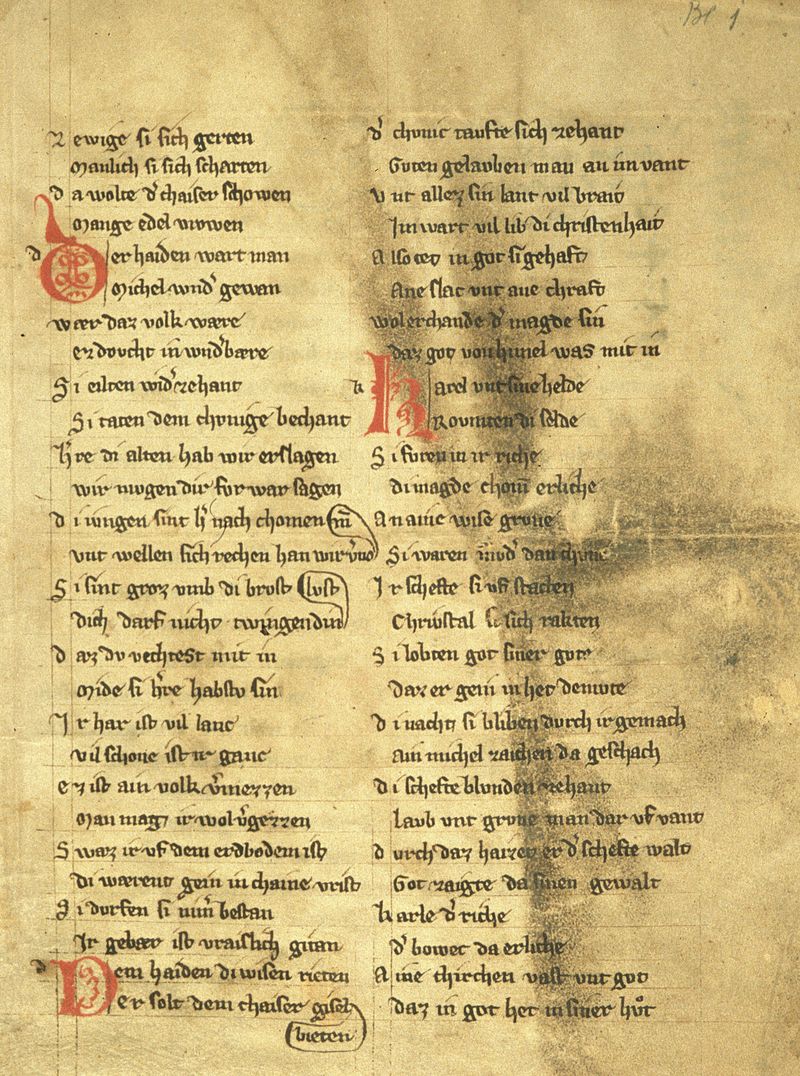 Bl 1
Z ewige si sich gerten
Manlich si sich scharten
d a wolte d' chaiser schowen
Mange edel vrowen
D er haiden wart man
Michel wnd' gewan
wær daz volk wære
ez dovcht in wnd'bære
S i eilten wid' zehant
Si taten dem chvnige bechant
h're di alten hab wir erslagen
wir mvgen dir for war sagen
d i ivngen sint h' nach chomen
vnt wellen sich rechen han wir
S i sint groz vmb di brvst
dich darf nicht twingen div lvst
d az dv vechtest mit in
Mide si h're habstv sin
I r har ist vil lanc
vil schone ist ir ganc
ez ist ain volk v'mezzen
Man mag ir wol v'gezzen
S waz ir vf dem erdbodem ist
di wærent gein in chaine vrist
S i dorfen si nim' bestan
Ir gebær ist vraislich gitan
D em haiden di wisen rieten
er solt dem chaiser gisel
bieten
d' chvnic tavfte sich zehant
Guten gelavben man an im vant
v nt allez sin lant vil brait
Im wart vil lib di christenhait
A lso tet in got sigehaft
Ane slac vnt ane chraft
wol erchande d' magde sin
daz got von himel was mit in
K arel vnt sine helde
Rovmten di selde
S i fvren in ir riche
di magde chom erliche
A n aine wise grvne
Si waren mvd' dan chvne
I r schefte si vf stachen
Chrivstal si sich rakten
S i lobten got siner gvte
daz er gein in het demvte
d i nacht si bliben dvrch ir gemach
Ain michel zaichen da geschach
d i schefte blvnden zehant
Lavb vnt grvne man dar vf vant
d vrch daz haizet er d' schefte walt
Got zaigte da sinen gewalt
Karle d' riche
d' bowet da erliche
A ine chirchen vast vnt gvt
daz in got het in siner hvt